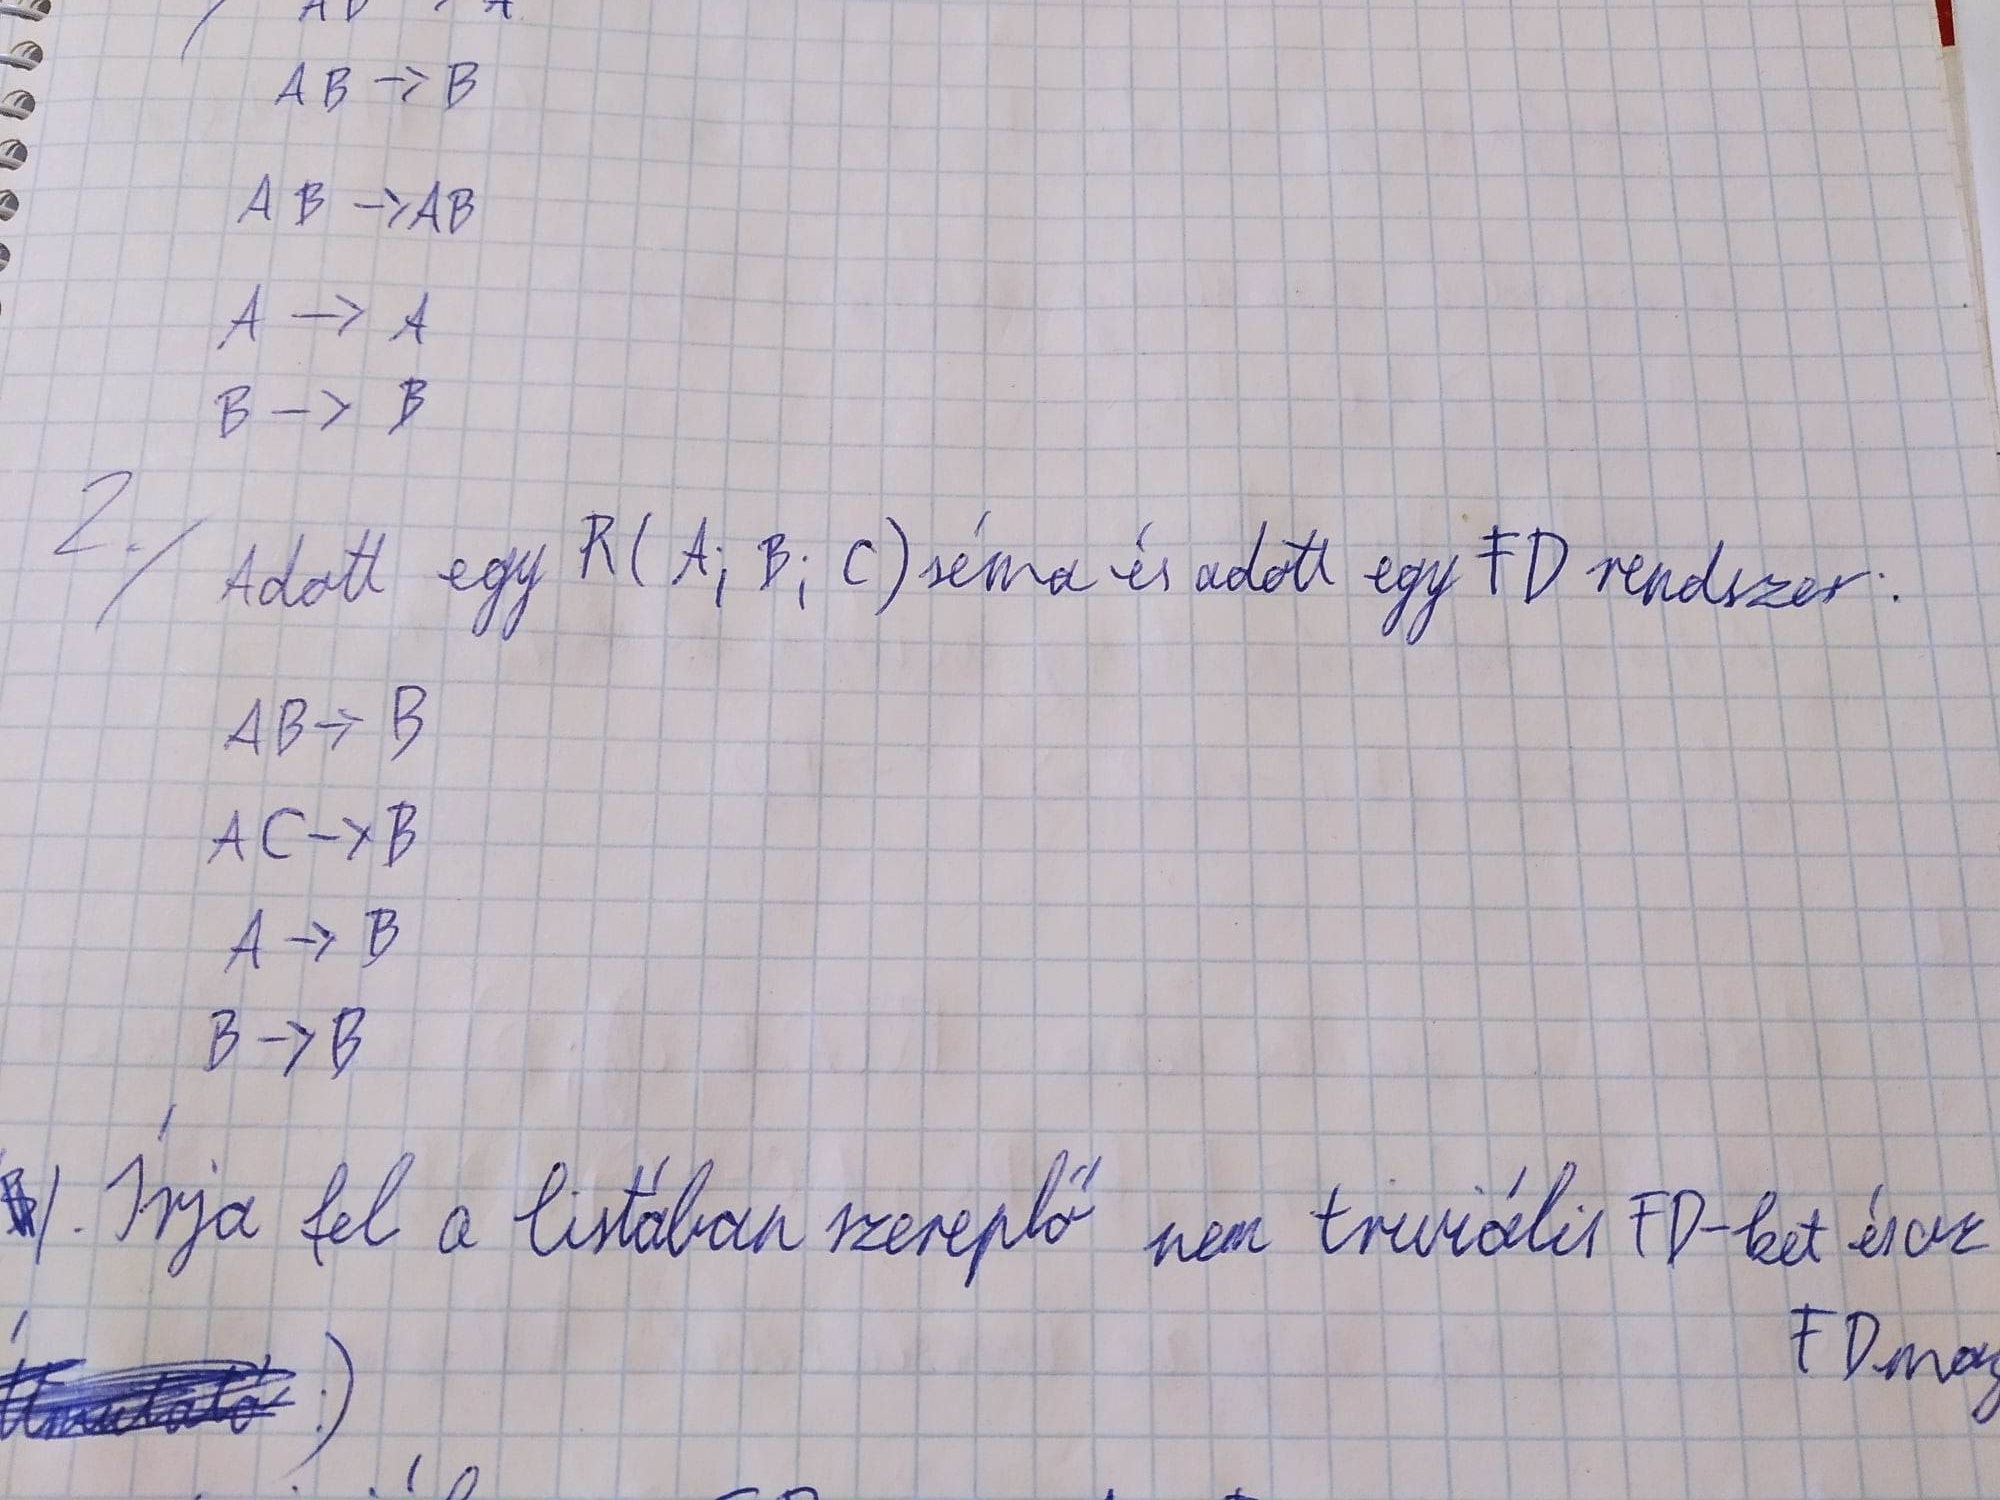 AB → B
AB → AB
A → A
B → B
2./ Adott egy R(A; B; C) séma és adott egy FD rendszer:
AB → B
AC → B
A → B
B → B
Írja fel a listában szereplő nem triviális FD-ket és az
FD mag
:)